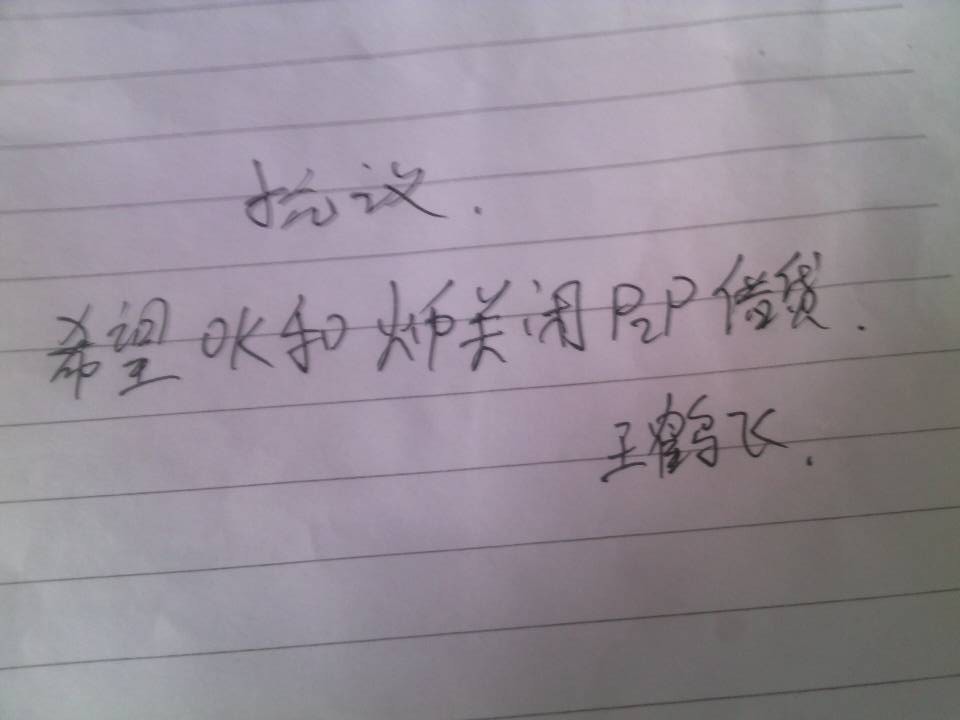 抗议.
希望OK和火币关闭P2P借贷.
王鹤飞.